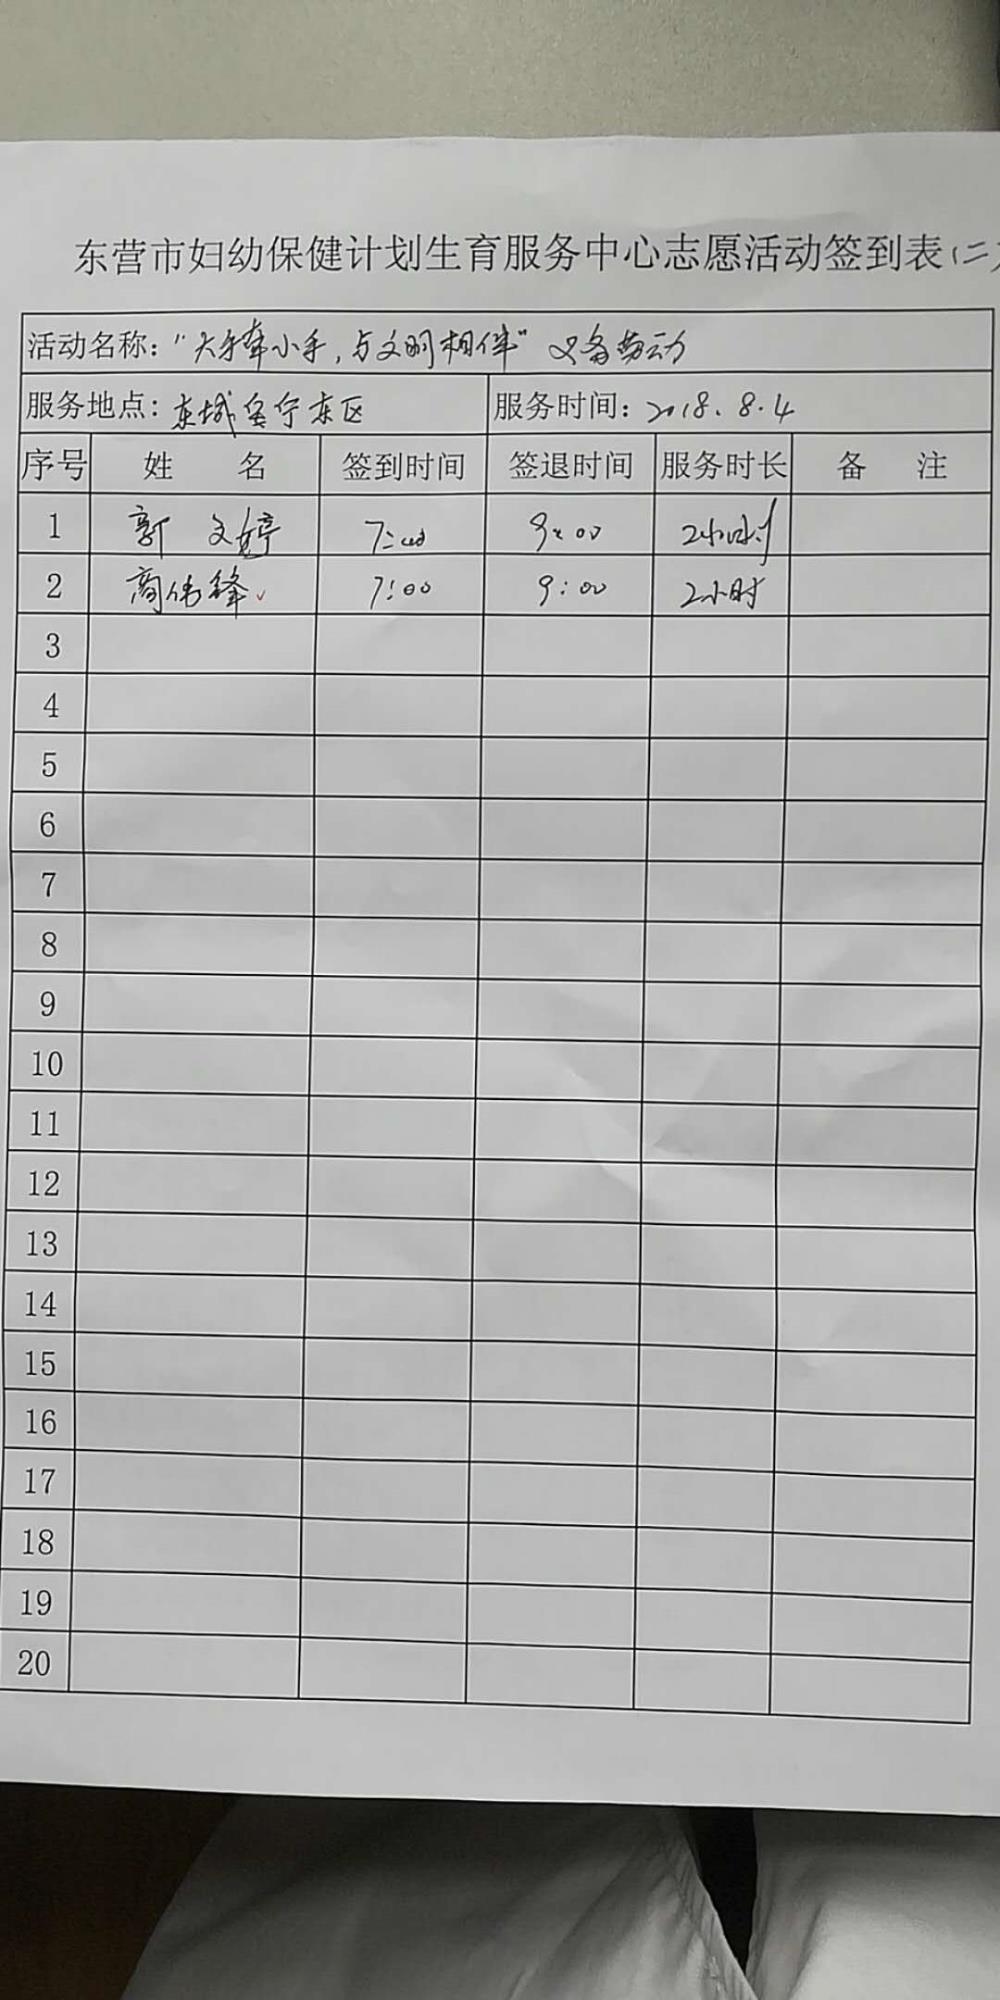 东营市妇幼保健计划生育服务中心志愿活动签到表(二)
活动名称："大手牵小手，与文明相伴"义务劳动
服务地点：东城安宁东区 服务时间：2018.8.4
序号 姓 名 签到时间 签退时间 服务时长 备 注
1 郭 文婷 7:00 9:00 2小时
2 商伟锋 7:00 9:00 2小时
3
4
5
6
7
8
9
10
11
12
13
14
15
16
17
18
19
20